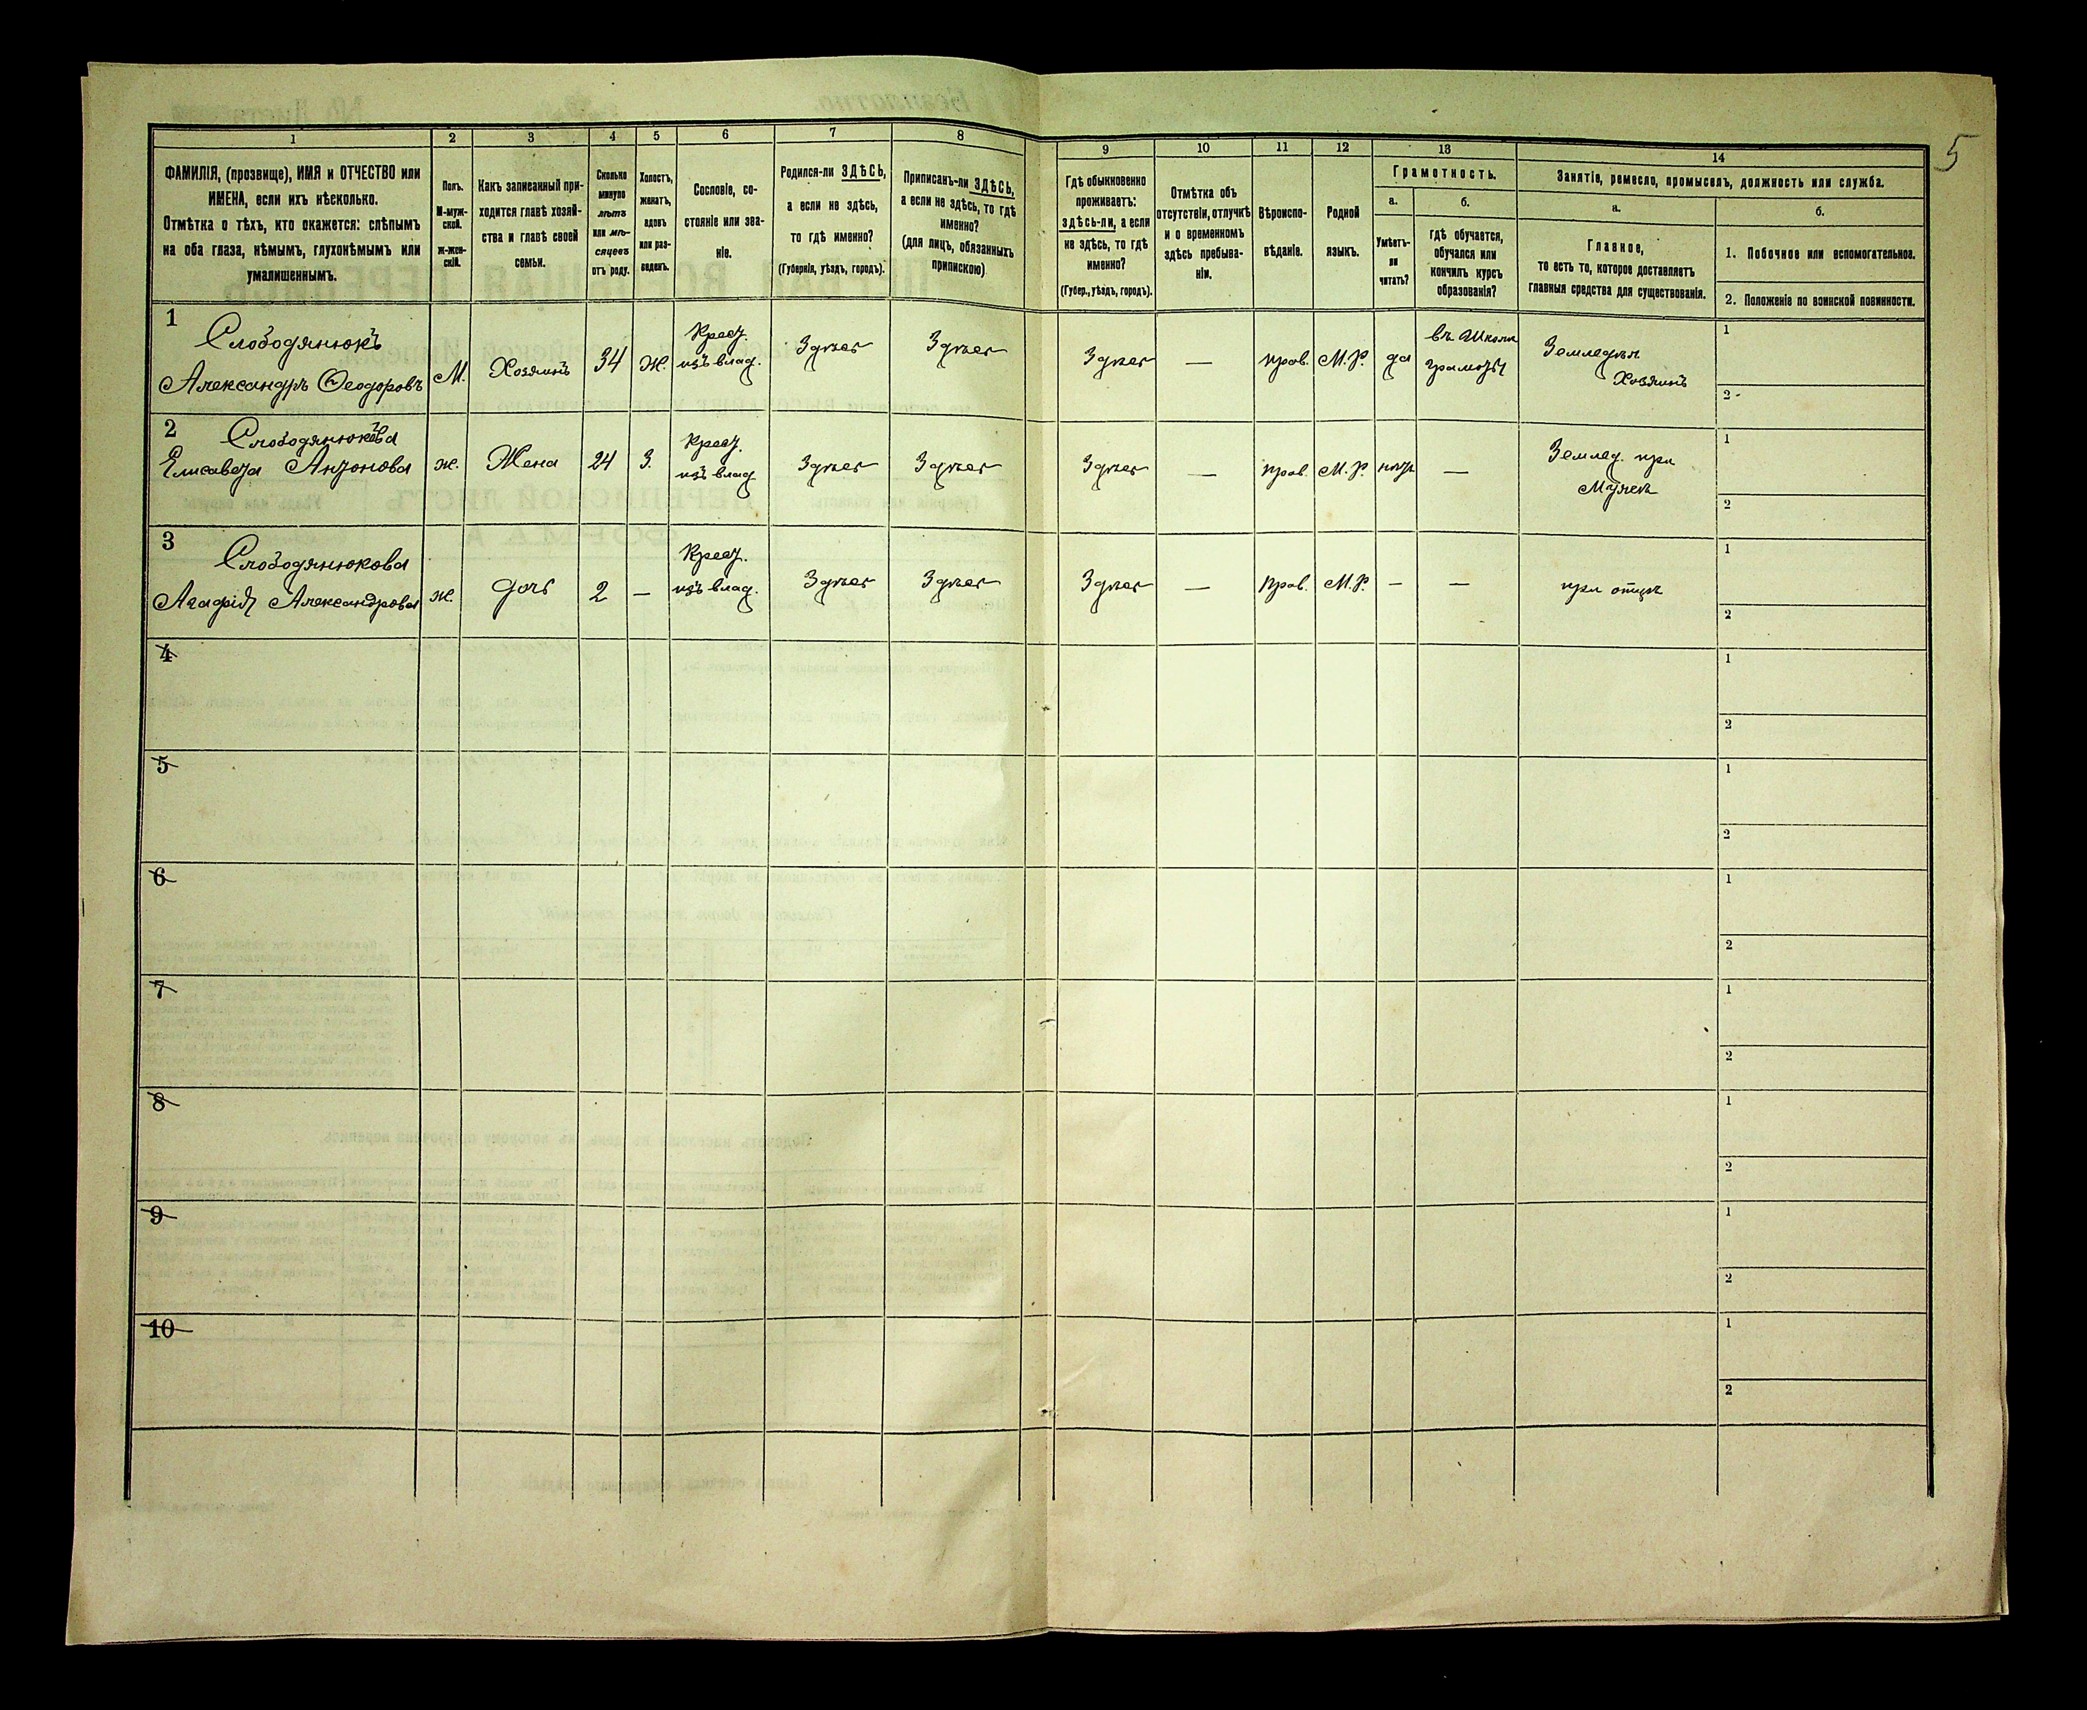 5
1
ФАМИЛІЯ, (прозвище), ИМЯ и ОТЧЕСТВО или
ИМЕНА, если ихъ нѣсколько.
Отмѣтка о тѣхъ, кто окажется: слѣпымъ
на оба глаза, нѣмымъ, глухонѣмымъ или
умалишеннымъ.
2
Полъ.
М-муж-
ской.
ж-жен-
скій.
3
Какъ записанный при-
ходится главѣ хозяй-
ства и главѣ своей
семьи.
4
Сколько
минуло
лѣтъ
или мѣ-
сяцевъ
отъ роду.
5
Холостъ,
женатъ,
вдовъ
или раз-
веденъ.
6
Сословіе, со-
стояніе или зва-
ніе.
7
Родился-ли ЗДѢСЬ,
а если не здѣсь,
то гдѣ именно?
(Губернія, уѣздъ, городъ).
8
Приписанъ-ли ЗДѢСЬ,
а если не здѣсь, то гдѣ
именно?
(для лицъ, обязанныхъ
припискою)
9
Гдѣ обыкновенно
проживаетъ:
здѣсь-ли, а если
не здѣсь, то гдѣ
именно?
(Губер., уѣздъ, городъ).
10
Отмѣтка объ
отсутствіи, отлучкѣ
и о временномъ
здѣсь пребыва-
ніи.
11
Вѣроиспо-
вѣданіе.
12
Родной
языкъ.
13
Грамотность.
а.
Умѣетъ-
ли
читать?
б.
гдѣ обучается,
обучался или
кончилъ курсъ
образованія?
14
Занятіе, ремесло, промыселъ, должность или служба.
а.
Главное,
то есть то, которое доставляетъ
главныя средства для существованія.
б.
1. Побочное или вспомогательное.
2. Положеніе по воинской повинности.
1
Слободянюкъ
Александръ Ѳеодоровъ
М.
Хозяинъ
34
Ж.
Крест.
изъ влад.
Здѣсь
Здѣсь
Здѣсь
—
прав.
М.Р.
да
въ Школѣ
грамоты
Земледѣл
Хозяинъ
1
2
2
Слободянюкова
Елисавета Антонова
ж.
Жена
24
З.
Крест.
изъ влад
Здѣсь
Здѣсь
Здѣсь
—
прав.
М.Р.
нѣтъ
—
Землед. при
Мужѣ
1
2
3
Слободянюкова
Агафія Александрова
ж.
дочь
2
—
Крест.
изъ влад.
Здѣсь
Здѣсь
Здѣсь
—
Прав.
М.Р.
—
—
при отцѣ
1
2
4
1
2
5
1
2
6
1
2
7
1
2
8
1
2
9
1
2
10
1
2